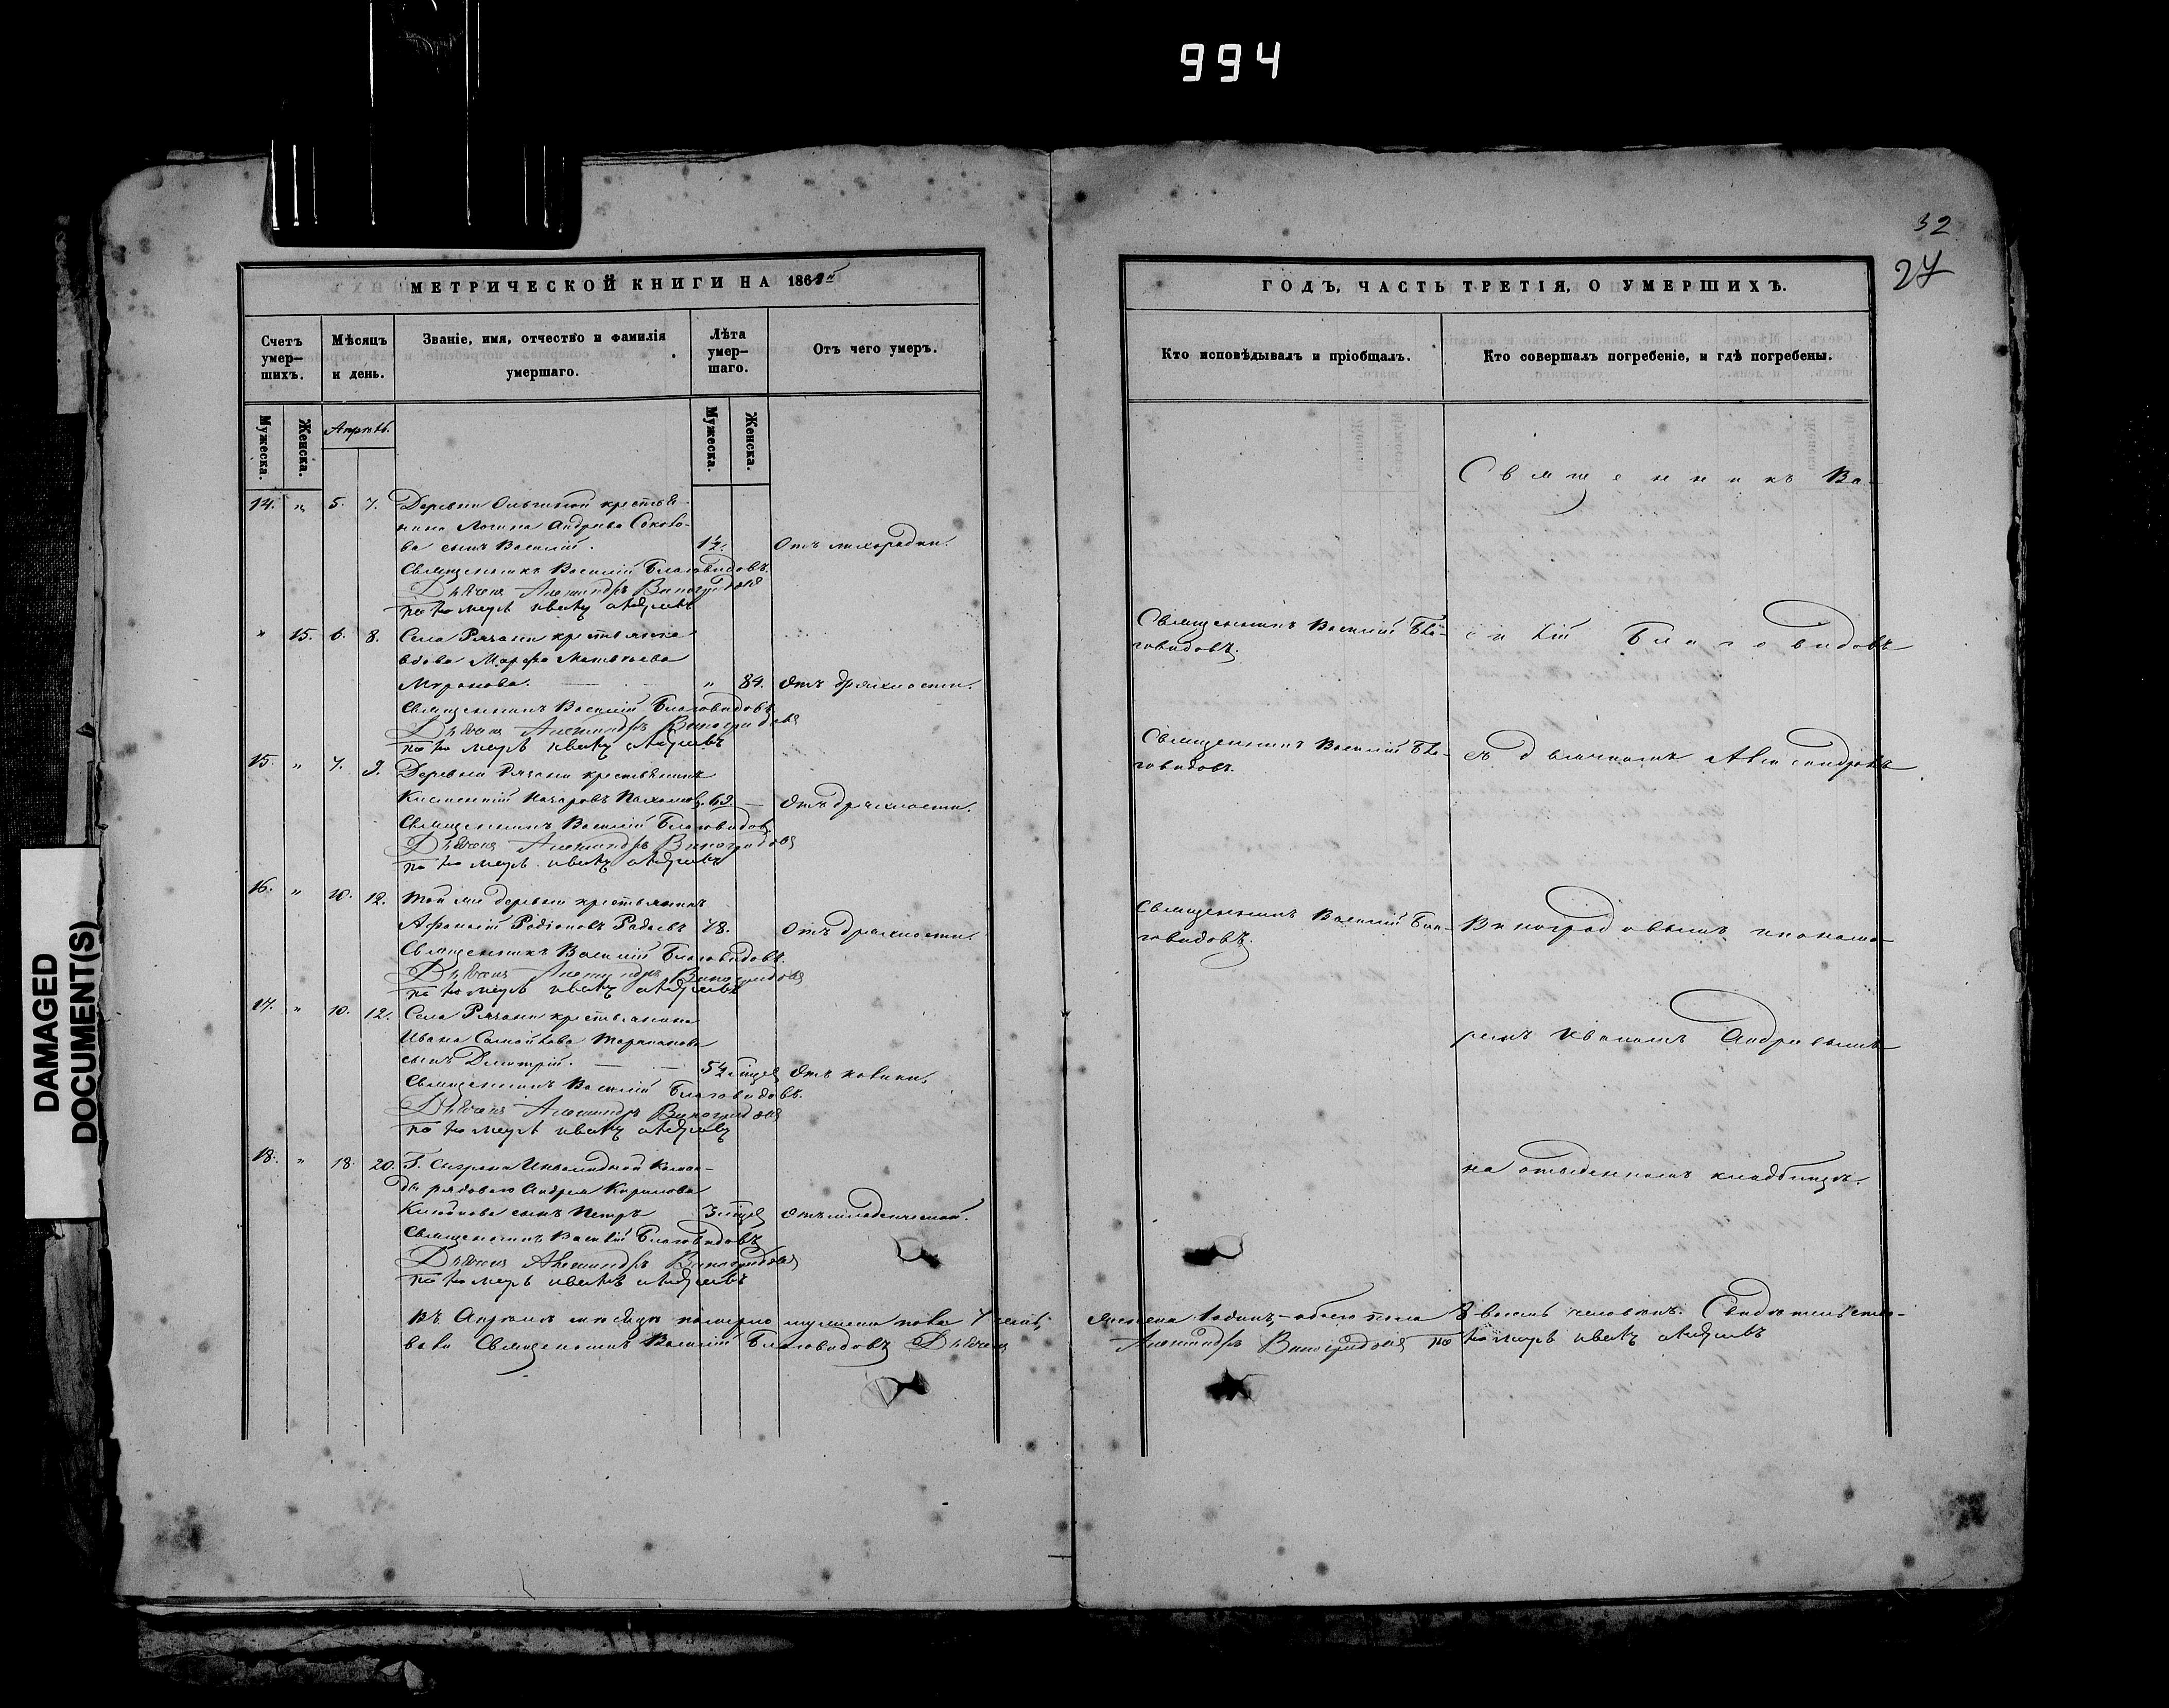 994
DAMAGED
DOCUMENT(S)
МЕТРИЧЕСКОЙ КНИГИ НА 186
Счетъ умер-шихъ.
Мѣсяцъ и день.
Званіе, имя, отчество и фамилія умершаго.
Лѣта умер-шаго.
Отъ чего умеръ.
Мужеска.
Женска.
Апрѣль.
Мужеска.
Женска.
14. „ 5. 7. Деревни крестья-
нина Логина Андреева Соколо-
ва сынъ Василій. 1½. Отъ лихорадки.
Священникъ Василій Благовидовъ.
Дьяконъ Александръ Виноградовъ
пономарь Иванъ Андреевъ
„ 15. 6. 8. Села Рачейки крестьянка
вдова Марѳа Матвѣева
Миронова. „ 84. Отъ дряхлости.
Священникъ Василій Благовидовъ
Дьяконъ Александръ Виноградовъ
пономарь Иванъ Андреевъ
15. „ 7. 9. Деревни крестьянинъ
Назаровъ Пахомовъ. 69. — Отъ дряхлости.
Священникъ Василій Благовидовъ
Дьяконъ Александръ Виноградовъ
пономарь Иванъ Андреевъ
16. „ 10. 12. Той же деревни крестьянинъ
Афанасій Родіоновъ Радаевъ 78. Отъ дряхлости.
Священникъ Василій Благовидовъ.
Дьяконъ Александръ Виноградовъ
пономарь Иванъ Андреевъ
17. „ 10. 12. Села крестьянина
Ивана Самойлова
сынъ Дмитрій. — — 5½ мѣсяц. Отъ
Священникъ Василій Благовидовъ.
Дьяконъ Александръ Виноградовъ
пономарь Иванъ Андреевъ
18. „ 18. 20. Г. Сызрана Инвалидной Коман-
ды рядоваго Андрея Кирилова
сынъ Петръ 3 мѣсяц. Отъ младенческой.
Священникъ Василій Благовидовъ
Дьяконъ Александръ Виноградовъ
пономарь Иванъ Андреевъ
Въ Апрѣлѣ мѣсяцѣ померло мужеска пола 7 семь,
вали Священникъ Василій Благовидовъ Дьяконъ
32
27
ГОДЪ, ЧАСТЬ ТРЕТІЯ, О УМЕРШИХЪ.
Кто исповѣдывалъ и пріобщалъ.
Кто совершалъ погребеніе, и гдѣ погребены.
Священникъ Ва-
Священникъ Василій Бла-
говидовъ.
силій Благовидовъ
Священникъ Василій Бла-
говидовъ.
съ дьякономъ Александромъ
Священникъ Василій Бла-
говидовъ.
Виноградовымъ и понома-
ремъ Иваномъ Андреевымъ
на отведенномъ кладбищѣ.
женска 1 одинъ, — обоего пола 8 восемь человѣкъ. Свидѣтельство-
Александръ Виноградовъ пономарь Иванъ Андреевъ